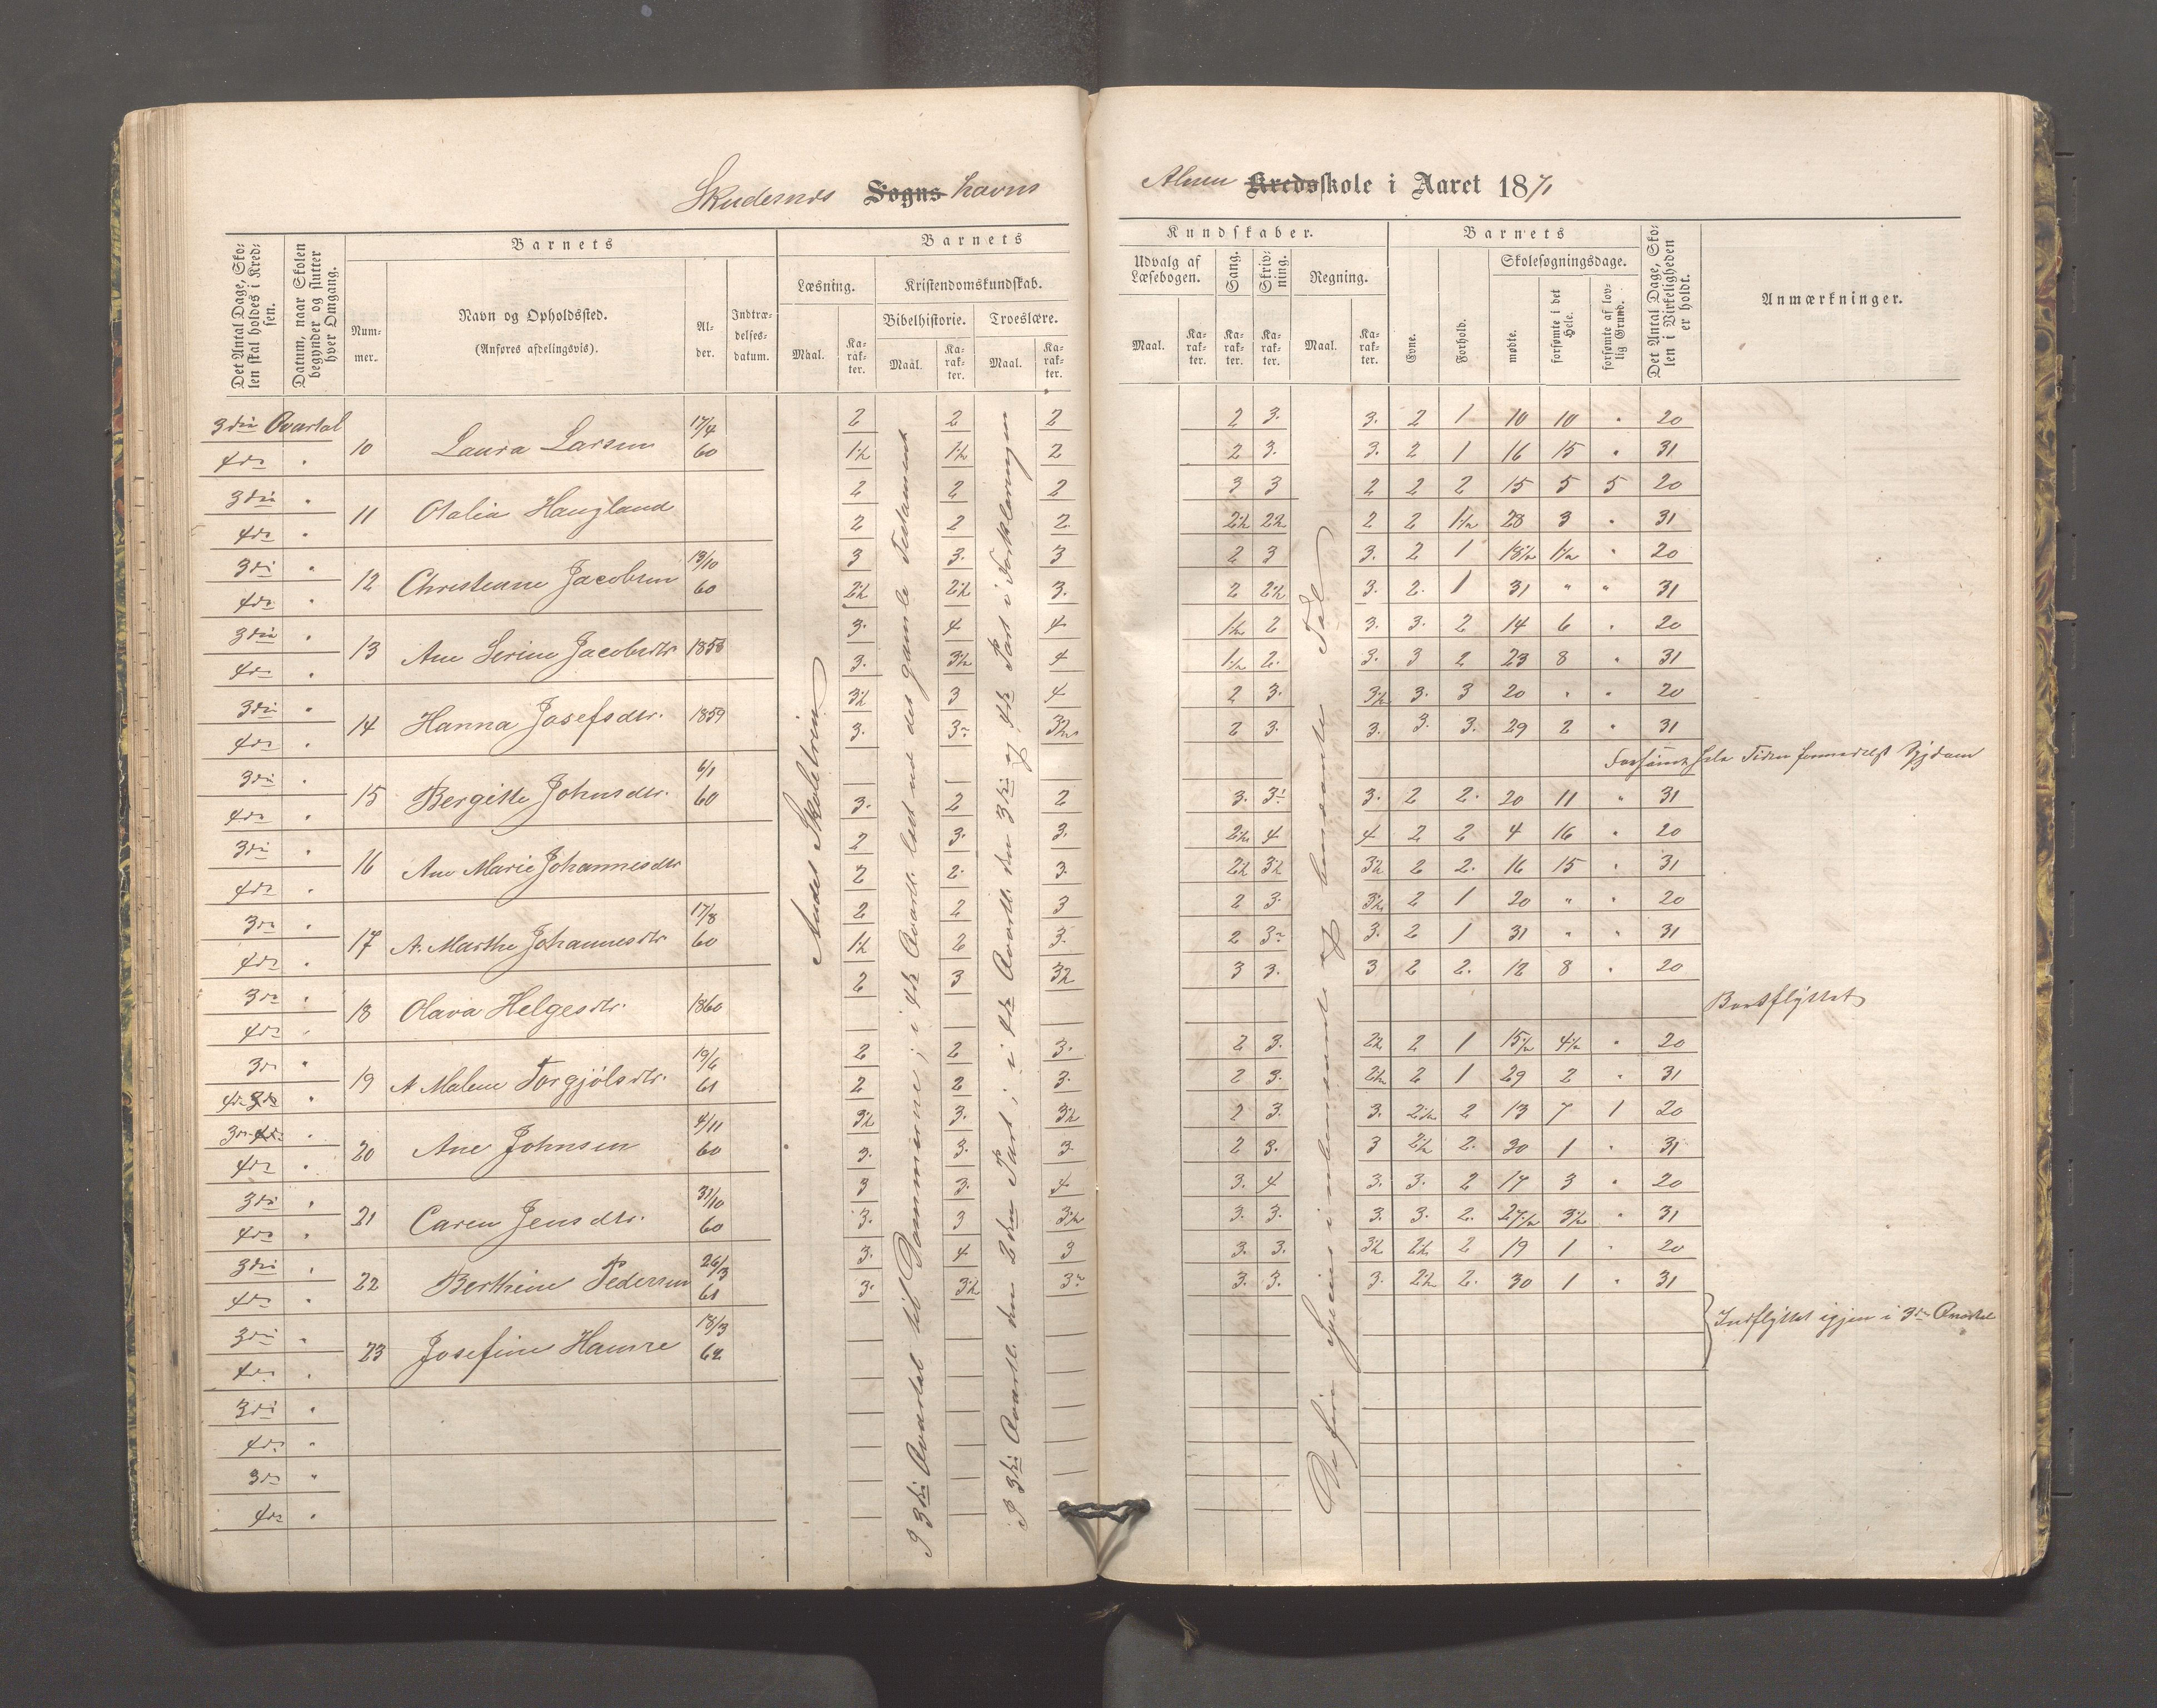 Skudesnes Sogns havns
Almu Kredsskole i Aaret 1871
Det Antal Dage, Skolen skal holdes i Kredsen.
Datum, naar Skolen begynder og slutter hver Omgang.
Barnets
Nummer.
Navn og Opholdssted.
(Anføres afdelingsvis).
Alder.
Indtrædelsesdatum.
Barnets
Læsning.
Maal.
Karakter.
Kristendomskundskab.
Bibelhistorie.
Maal.
Karakter.
Troeslære.
Maal.
Karakter.
Kundskaber.
Udvalg af Læsebogen.
Maal.
Karakter.
Sang.
Karakter.
Skrivning.
Karakter.
Regning.
Maal.
Karakter.
Barnets
Evne.
Forhold.
Skolesøgningsdage.
mødte.
forsømte i det Hele.
forsømte af lovlig Grund.
Det Antal Dage, Skolen i Virkeligheden er holdt.
Anmærkninger.
3die Qvartal 10 Laura Larsen 17/4 60 2 2 2 2 3. 3. 2 1 10 10 " 20
4de " 1½ 1½ 2 2 3. 3. 2 1 16 15 " 31
3die " 11 Otalia Haugland 2 2 2 3 3 2 2 2 15 5 5 20
4de " 2 2 2 2½ 2½ 2 2 1½ 28 3 " 31
3die " 12 Christiane Jacobsen 13/10 60 3 3. 3 2 3 3. 2 1 18½ 1½ " 20
4de " 2½ 2½ 3. 2 2½ 3. 2. 1 31 " " 31
3die " 13 Ane Serine Jacobsdtr 1858 3. 4 4 1½ 2 3. 3. 2 14 6 " 20
4de " 3. 3½ 4 1½ 2. 3. 3 2 23 8 " 31
3die " 14 Hanna Josefsdtr. 1859 3½ 3 4 2 3. 3½ 3. 3 20 " " 20
4de " 3. 3 3½ 2 3. 3. 3. 3. 29 2 " 31
3die " 15 Bergitte Johnsdtr. 6/1 60 Forsømt hele Tiden formedelst Sygdom
4de " 3. 2 2 3. 3 3. 2 2. 20 11 " 31
3die " 16 Ane Marie Johannesdtr 2 3. 3. 2½ 4 4 2 2 4 16 " 20
4de " 2 2. 3. 2½ 3½ 3½ 2 2. 16 15 " 31
3die " 17 A. Marthe Johannesdtr 17/8 60 2 2 3 2 3. 3½ 2 1 20 " " 20
4de " 1½ 2 3. 2 3 3. 2 1 31 " " 31
3die " 18 Olava Helgesdtr. 1860 2 3 3½ 3 3. 3 2 2. 12 8 " 20
4de " Bortflyttet
3die " 19 A Malene Torgjølsdtr. 19/6 61 2 2 3. 2 3. 2½ 2 1 15½ 4½ " 20
4de " 2 2 3. 2 3. 2½ 2 1 29 2 " 31
3die " 20 Ane Johnsen 4/11 60 3½ 3. 3½ 2 3. 3. 2½ 2 13 7 1 20
4de " 3. 3. 3. 2 3. 3 2½ 2. 30 1 " 31
3die " 21 Caren Jensdtr. 31/10 60 3 3. 4 3. 4 3. 3. 2 17 3 " 20
4de " 3. 3 3½ 3. 3. 3. 3. 2. 27½ 3½ " 31
3die " 22 Berthine Pedersen 26/3 61 3. 4 3 3. 3. 3½ 2½ 2 19 1 " 20
4de " 3. 3½ 3 3. 3. 3. 2½ 2. 30 1 " 31
3die " 23 Josefine Hamre 18/3 62 Indflyttet igjen i 3die Qvartal
4de "
3die "
4de "
3die "
4de "
Andet Skoletrin
I 3die Qvartal til Dommerne; i 4de Qvartl. læst ud det gamle Testamente
I 3die Qvartl. den 2den Part; i 4de Qvartl. den 3die og 4de Part i Forklaringen
De fire Species i ubenævnte og benævnte Tal